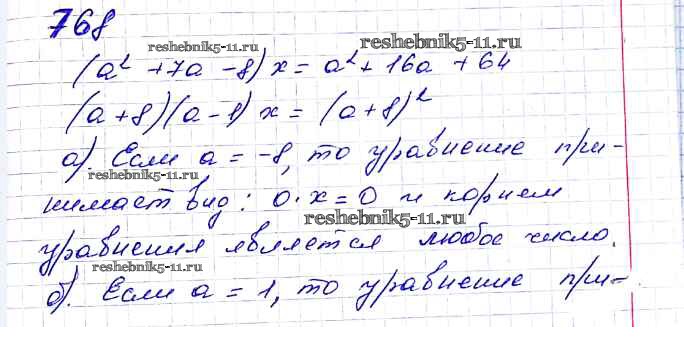 768
reshebnik5-11.ru reshebnik5-11.ru
(a² + 7a - 8) x = a² + 16a + 64
(a + 8)(a - 1) x = (a + 8)²
а). Если a = -8, то уравнение при-
reshebnik5-11.ru
нимает вид: 0·x = 0 и корнем
reshebnik5-11.ru
уравнения является любое число.
reshebnik5-11.ru
б). Если a = 1, то уравнение при-